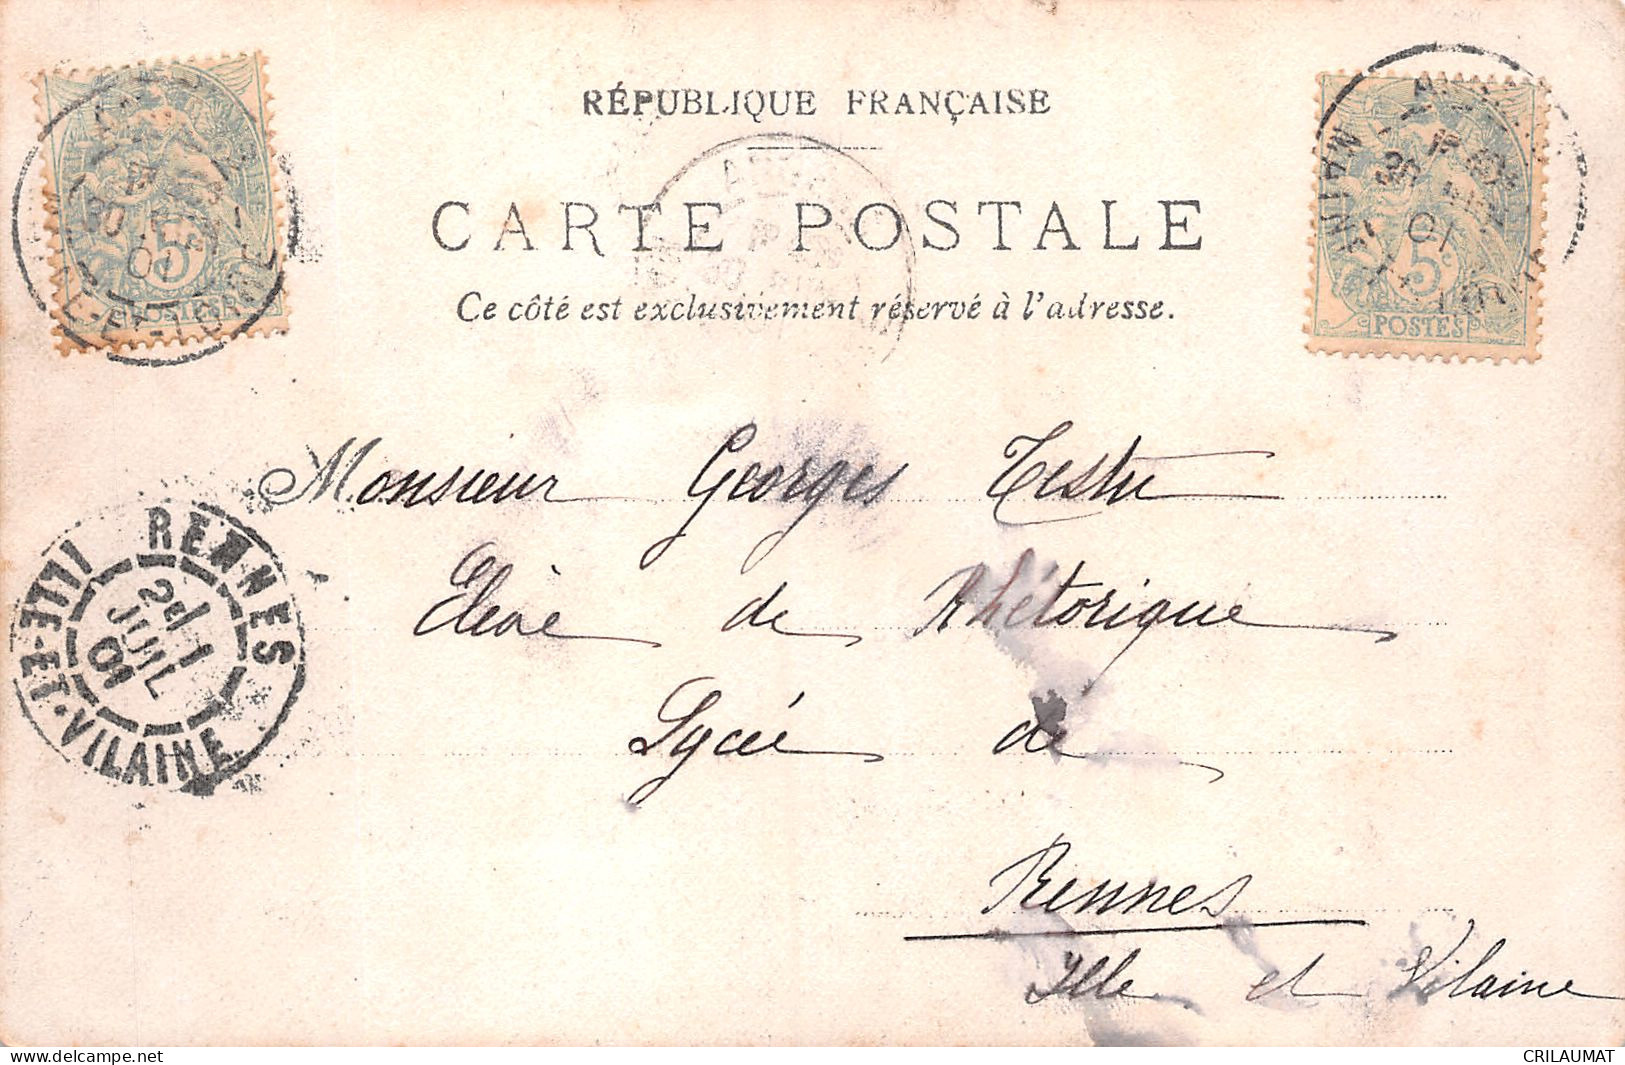 RÉPUBLIQUE FRANÇAISE
CARTE POSTALE
Ce côté est exclusivement réservé à l'adresse.
5
POSTES
01
5c
POSTES
MAINE
01
Monsieur Georges Testu
Elève de Rhétorique
Lycée de
Rennes
Ille et Vilaine
RENNES
JUIL
01
ILLE-ET-VILAINE
CRILAUMAT